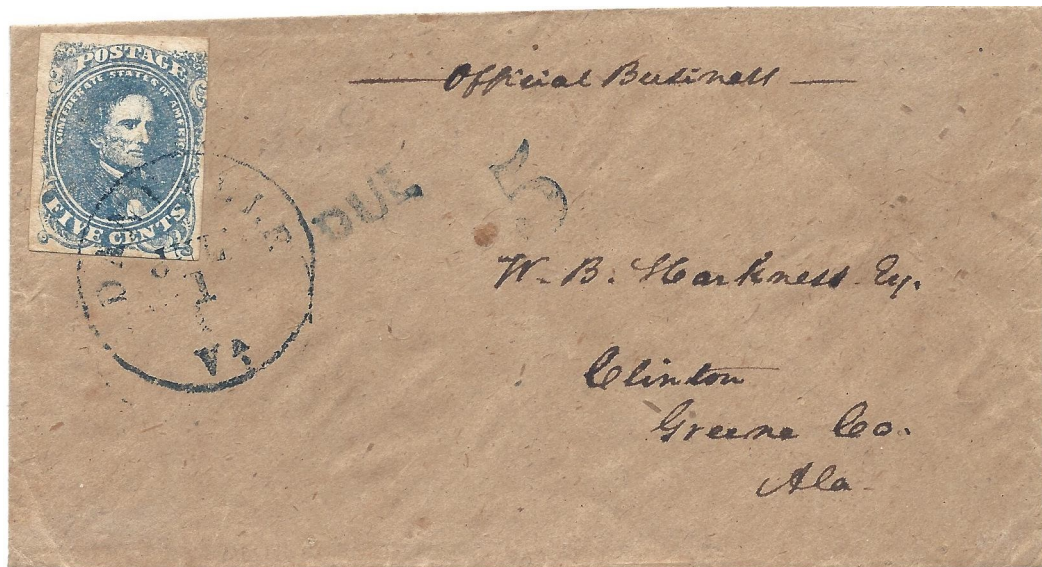 POSTAGE
CONFEDERATE STATES OF AMERICA
FIVE CENTS
Official Business
DANVILLE
JUL
1
VA
DUE 5
W. B. Harkness Esq.
Clinton
Greene Co.
Ala